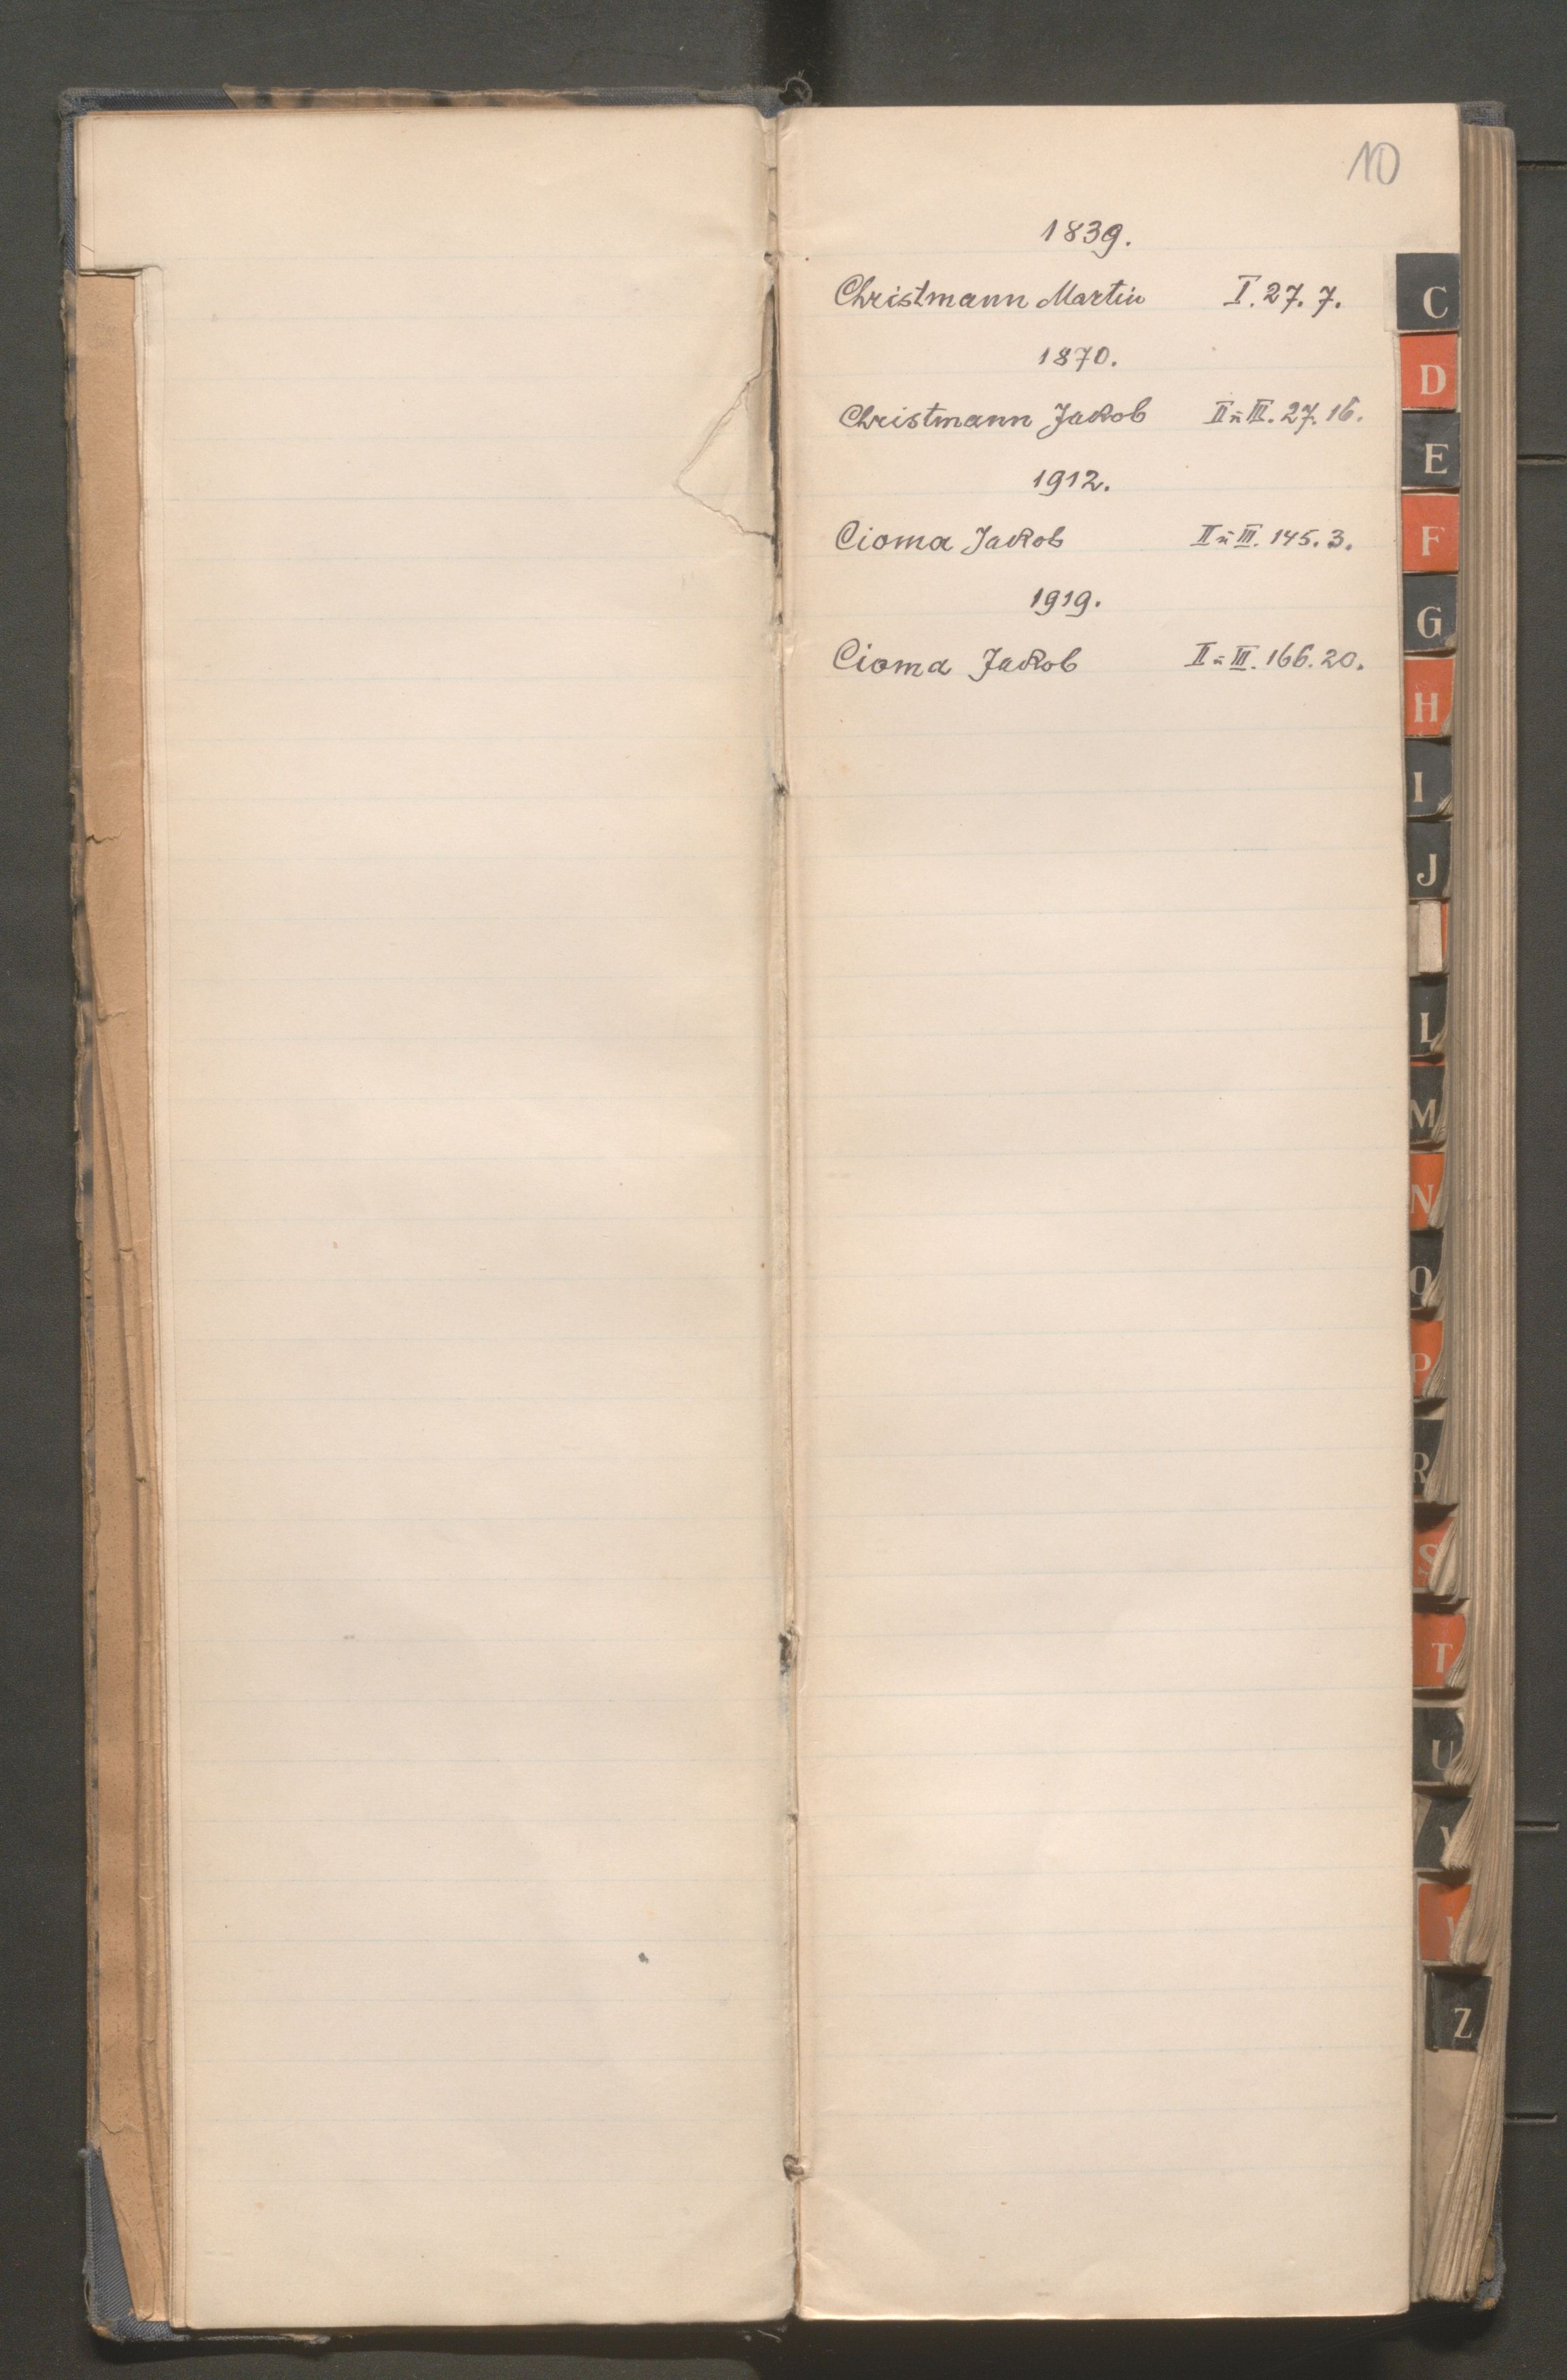 10
1839.
Christmann Martin I. 27. 7.
1870.
Christmann Jakob II u III. 27. 16.
1912.
Cioma Jakob II u III. 145. 3.
1919.
Cioma Jakob II u III. 166. 20.
C
D
E
F
G
H
I
J
L
M
N
O
P
R
S
T
U
Z